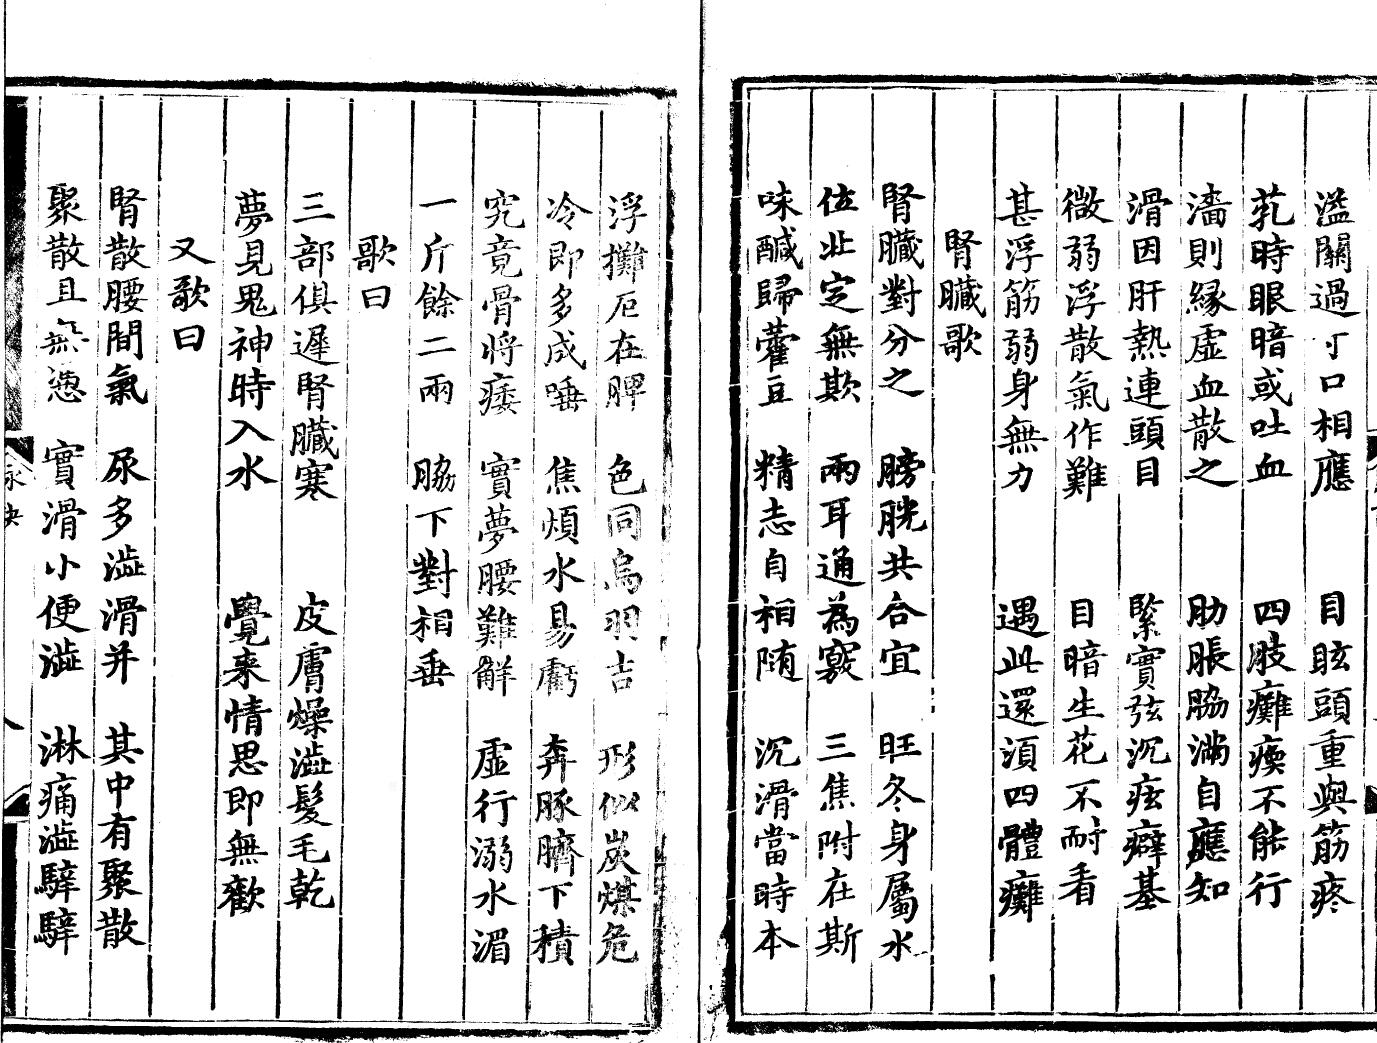 溢關過寸口相應　目眩頭重與筋疼
芤時眼暗或吐血　四肢癱瘓不能行
濇則緣虛血散之　肋脹脇滿自應知
滑因肝熱連頭目　緊實弦沉痃癖基
微弱浮散氣作難　目暗生花不耐看
甚浮筋弱身無力　遇此還須四體癱
腎臟歌
腎臟對分之　膀胱共合宜　旺冬身屬水
位北定無欺　兩耳通為竅　三焦附在斯
味醎歸藿豆　精志自相随　沉滑當時本
浮攤厄在脾　色同烏羽吉　形似炭煤危
冷即多成唾　焦煩水易虧　奔豚臍下積
究竟骨将痿　實夢腰難解　虛行溺水湄
一斤餘二兩　脇下對相垂
歌曰
三部俱遲腎臟寒　皮膚燥澁髮毛乾
夢見鬼神時入水　覺来情思即無歡
又歌曰
腎散腰間氣　尿多澁滑并　其中有聚散
聚散且無憑　實滑小便澁　淋痛澁騂騂